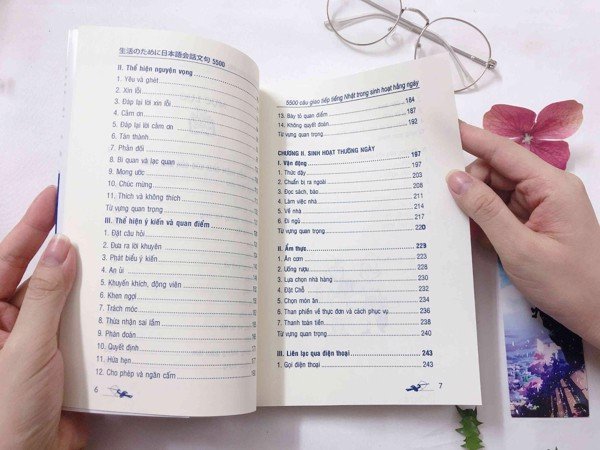 生活のために日本語会話文句 5500
II. Thể hiện nguyện vọng
1. Yêu và ghét
2. Xin lỗi
3. Đáp lại lời xin lỗi
4. Cảm ơn
5. Đáp lại lời cảm ơn
6. Tán thành
7. Phản đối
8. Bi quan và lạc quan
9. Mong ước
10. Chúc mừng
11. Thích và không thích
Từ vựng quan trọng
III. Thể hiện ý kiến và quan điểm
1. Đặt câu hỏi
2. Đưa ra lời khuyên
3. Phát biểu ý kiến
4. An ủi
5. Khuyến khích, động viên
6. Khen ngợi
7. Trách móc
8. Thừa nhận sai lầm
9. Phán đoán
10. Quyết định
11. Hứa hẹn
12. Cho phép và ngăn cấm
6
5500 câu giao tiếp tiếng Nhật trong sinh hoạt hằng ngày
13. Bày tỏ quan điểm 184
14. Không quyết đoán 187
Từ vựng quan trọng 192
CHƯƠNG II. SINH HOẠT THƯỜNG NGÀY 197
I. Vận động 197
1. Thức dậy 197
2. Chuẩn bị ra ngoài 203
3. Đọc sách, báo 208
4. Làm việc nhà 211
5. Về nhà 214
6. Đi ngủ 217
Từ vựng quan trọng 220
II. Ẩm thực 223
1. Ăn cơm 223
2. Uống rượu 226
3. Lựa chọn nhà hàng 230
4. Đặt Chỗ 232
5. Chọn món ăn 234
6. Than phiền về thực đơn và cách phục vụ 236
7. Thanh toán tiền 238
Từ vựng quan trọng 240
III. Liên lạc qua điện thoại 243
1. Gọi điện thoại 243
7